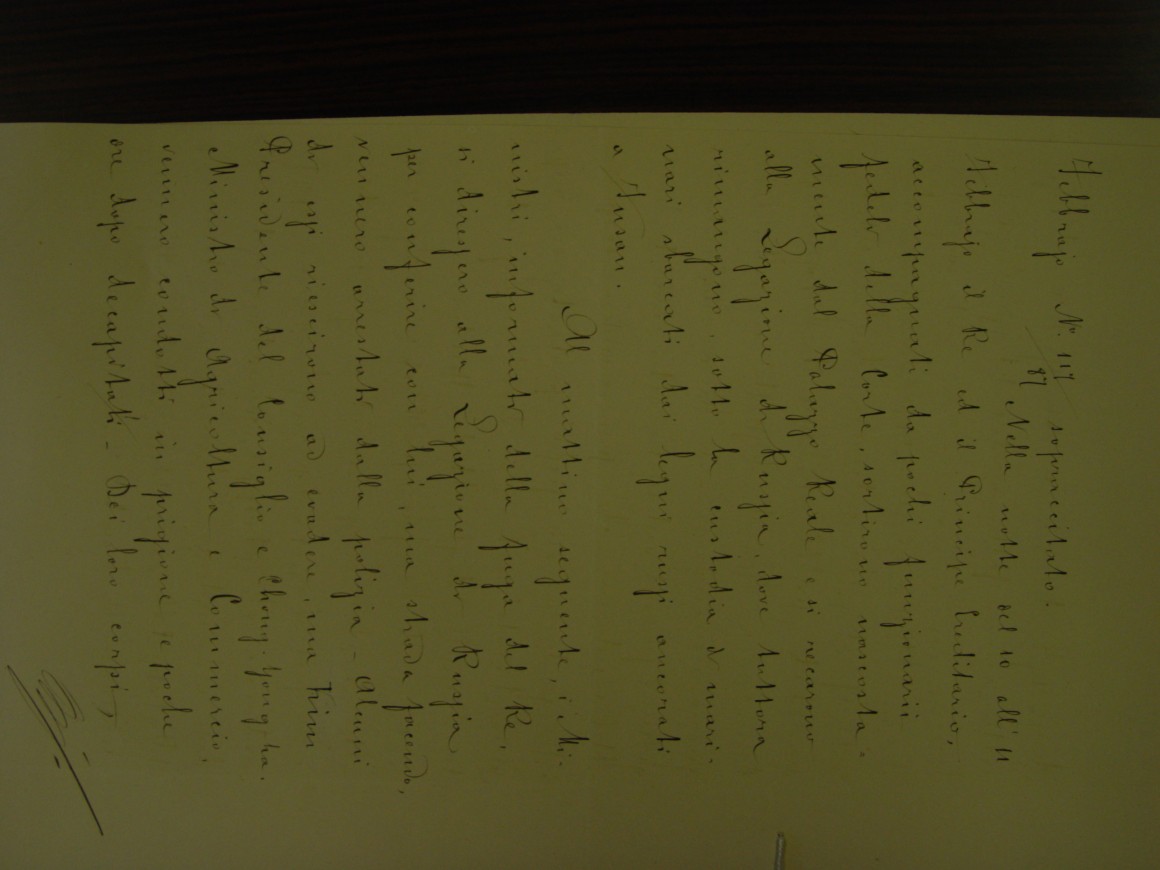 Febbrajo N. 117/87 sopraccitato:
Nella notte del 10 all'11
Febbrajo il Re ed il Principe Ereditario,
accompagnati da pochi funzionarii
fedeli della Corte, sortirono nascosta-
mente dal Palazzo Reale e si recarono
alla Legazione di Russia, dove tuttora
rimangono, sotto la custodia di mari-
nari sbarcati dai legni russi ancorati
a Fusan.
Al mattino seguente, i Mi-
nistri, informati della fuga del Re,
si diressero alla Legazione di Russia
per conferire con lui, ma strada facendo,
vennero arrestati dalla polizia - Alcuni
di essi riescirono ad evadere, ma Kim
Presidente del Consiglio e Chong-Yong-ha.
Ministro di Agricoltura e Commercio,
vennero condotti in prigione e poche
ore dopo decapitati - Dei loro corpi,